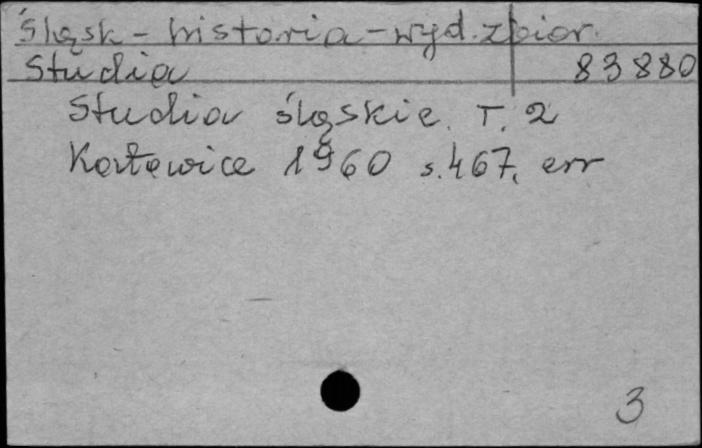 Śląsk - historia - wyd. zbior.
Studia 83880
Studia śląskie. T. 2
Katowice 1960 s. 467, err
3